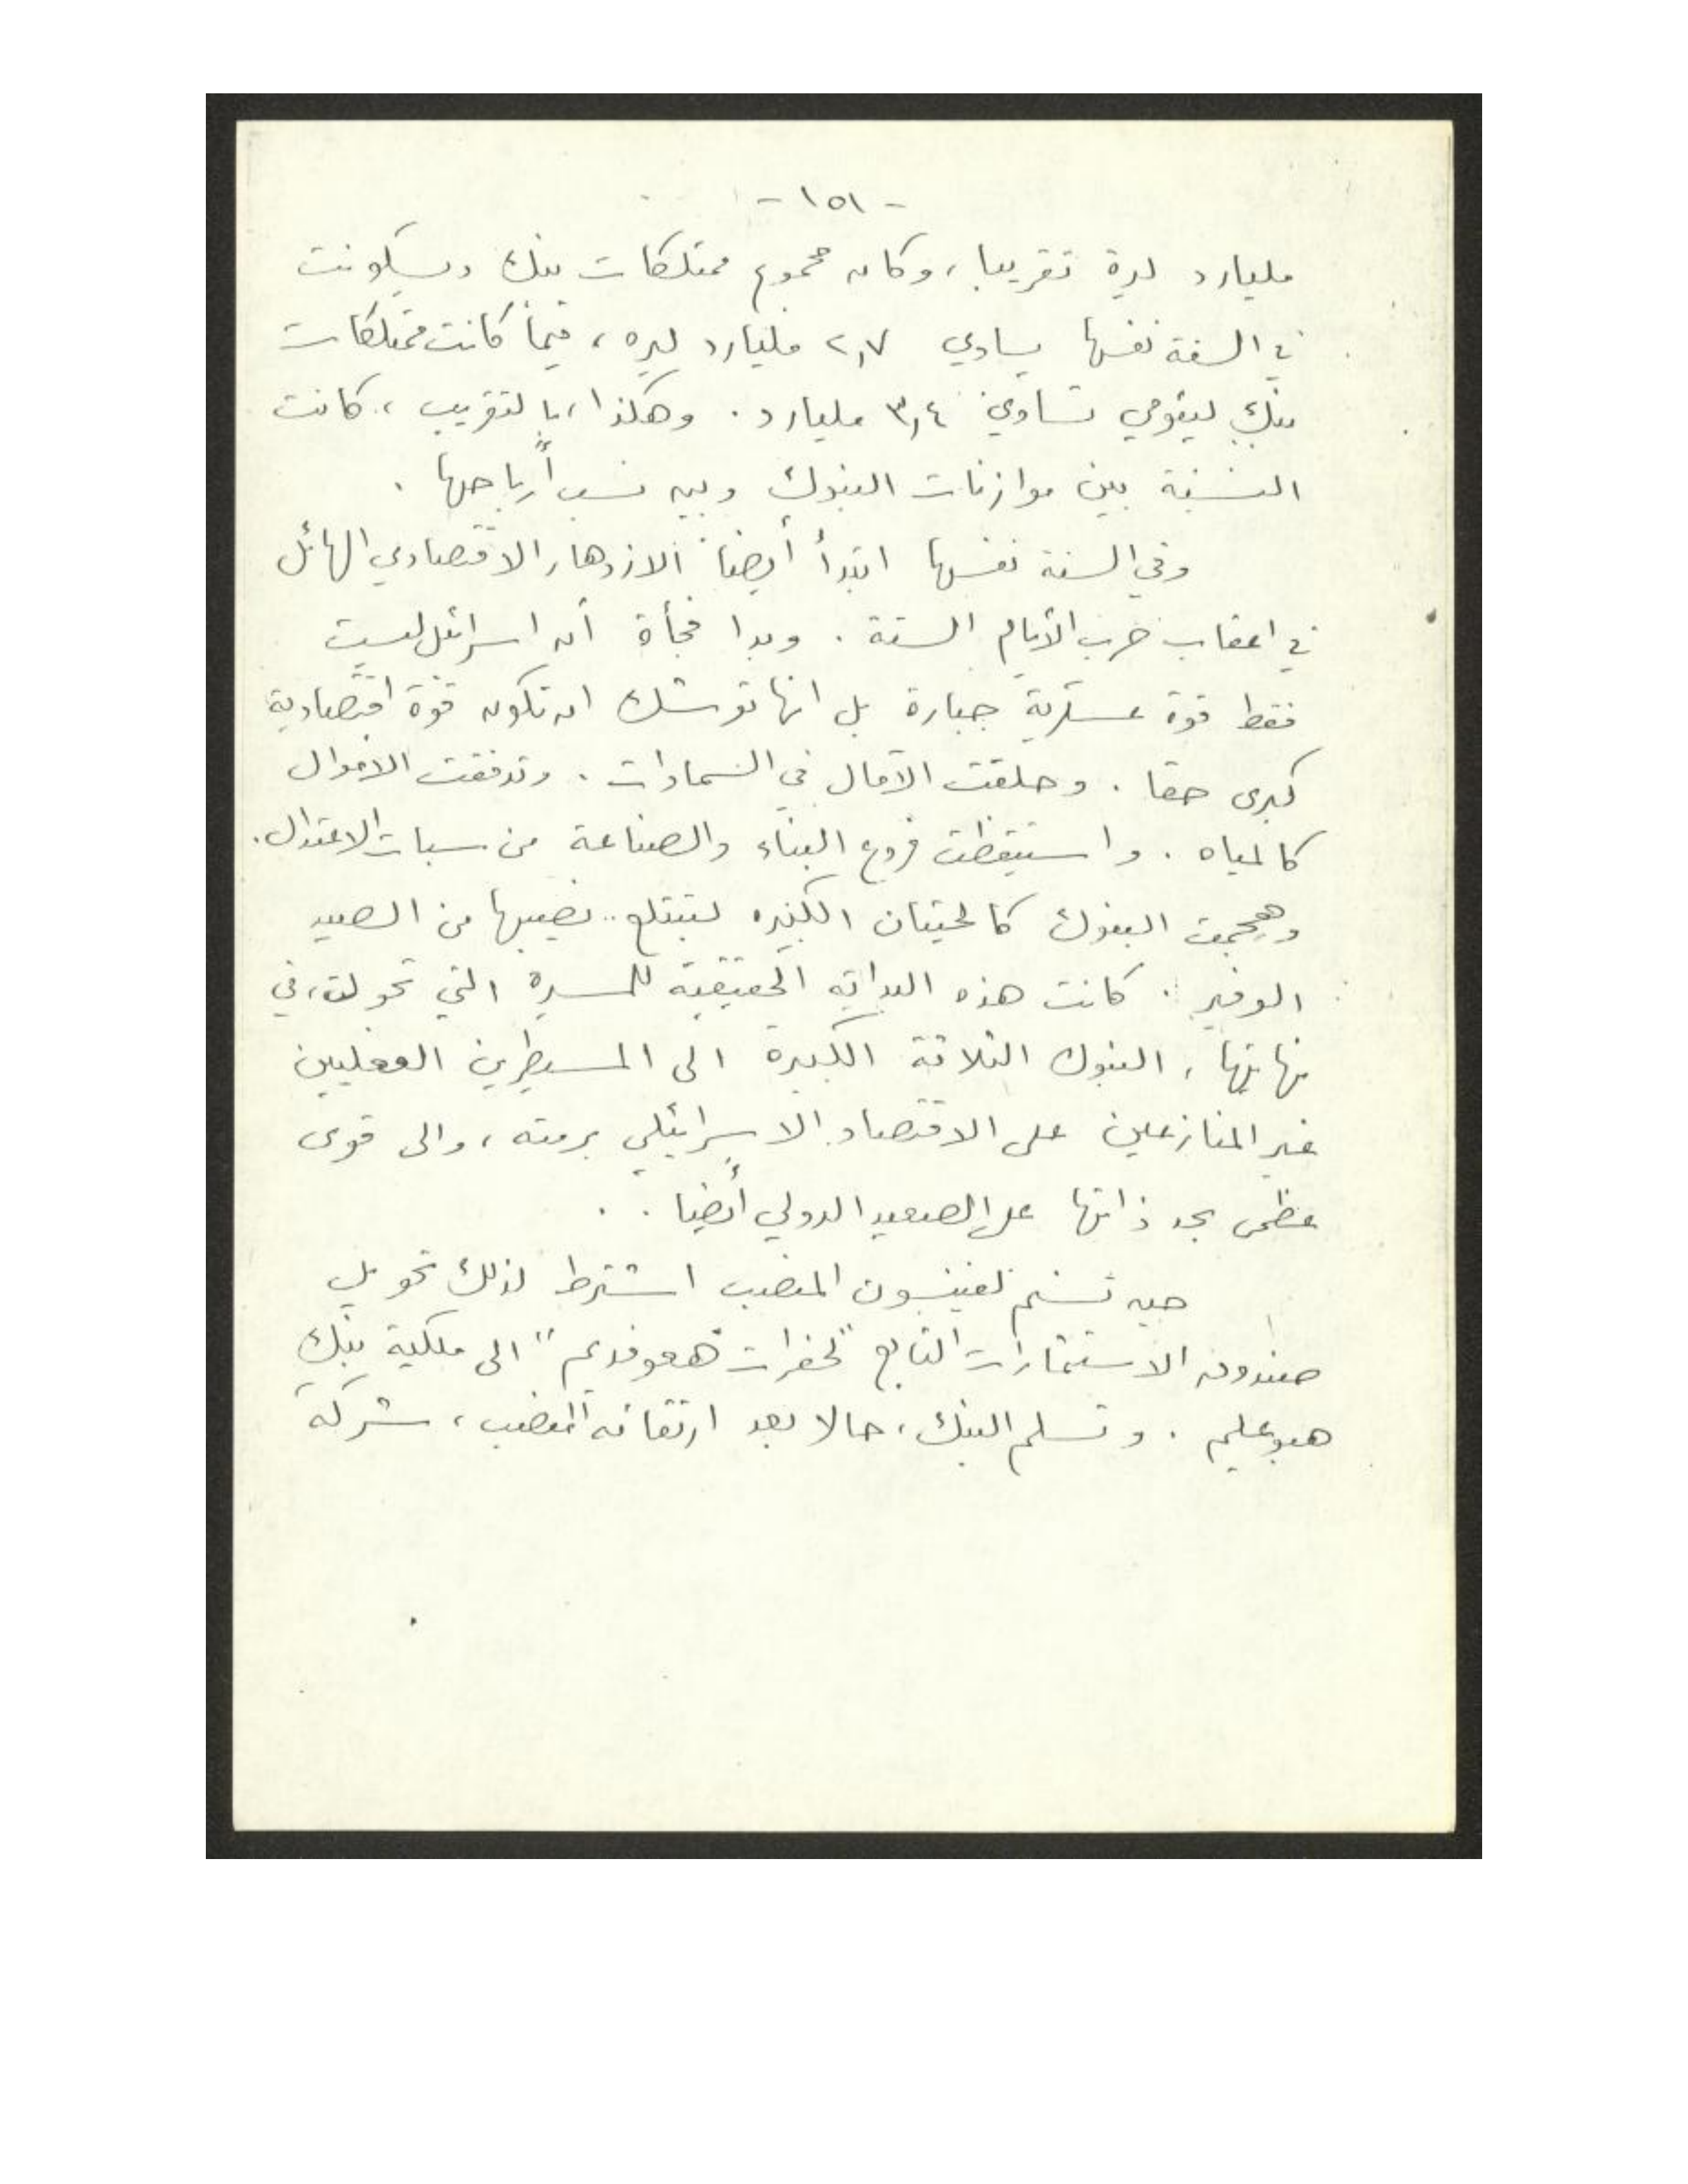 - ١٥١ -
مليارد ليرة تقريبا، وكان مجموع ممتلكات بنك ديسكونت
في السنة نفسها يساوي ٢,٧ مليارد ليره، فيما كانت ممتلكات
بنك ليئومي تساوي ٣,٤ مليارد. وهكذا، بالتقريب، كانت
النسبة بين موازنات البنوك وبين نسب أرباحها.
وفي السنة نفسها ابتدأ أيضا الازدهار الاقتصادي الهائل
في اعقاب حرب الأيام الستة. وبدا فجأة أن اسرائيل ليست
فقط قوة عسكرية جبارة بل انها توشك ان تكون قوة اقتصادية
كبرى حقا. وحلقت الآمال في السماوات. وتدفقت الاموال
كالمياه. واستيقظت فروع البناء والصناعة من سبات الاعتدال.
وهجمت البنوك كالحيتان الكبيره لتبتلع.. نصيبها من الصيد
الوفير. كانت هذه البداية الحقيقية للمسيرة التي تحولت، في
نهايتها، البنوك الثلاثة الكبيرة الى المسيطرين الفعليين
غير المنازعين على الاقتصاد الاسرائيلي برمته، والى قوى
عظمى بحد ذاتها على الصعيد الدولي أيضا..
حين تسنم لفينسون المنصب اشترط لذلك تحويل
صندوق الاستثمارات التابع "لحفرات هعوفديم" الى ملكية بنك
هبوعليم. وتسلم البنك، حالا بعد ارتقائه المنصب، شركة